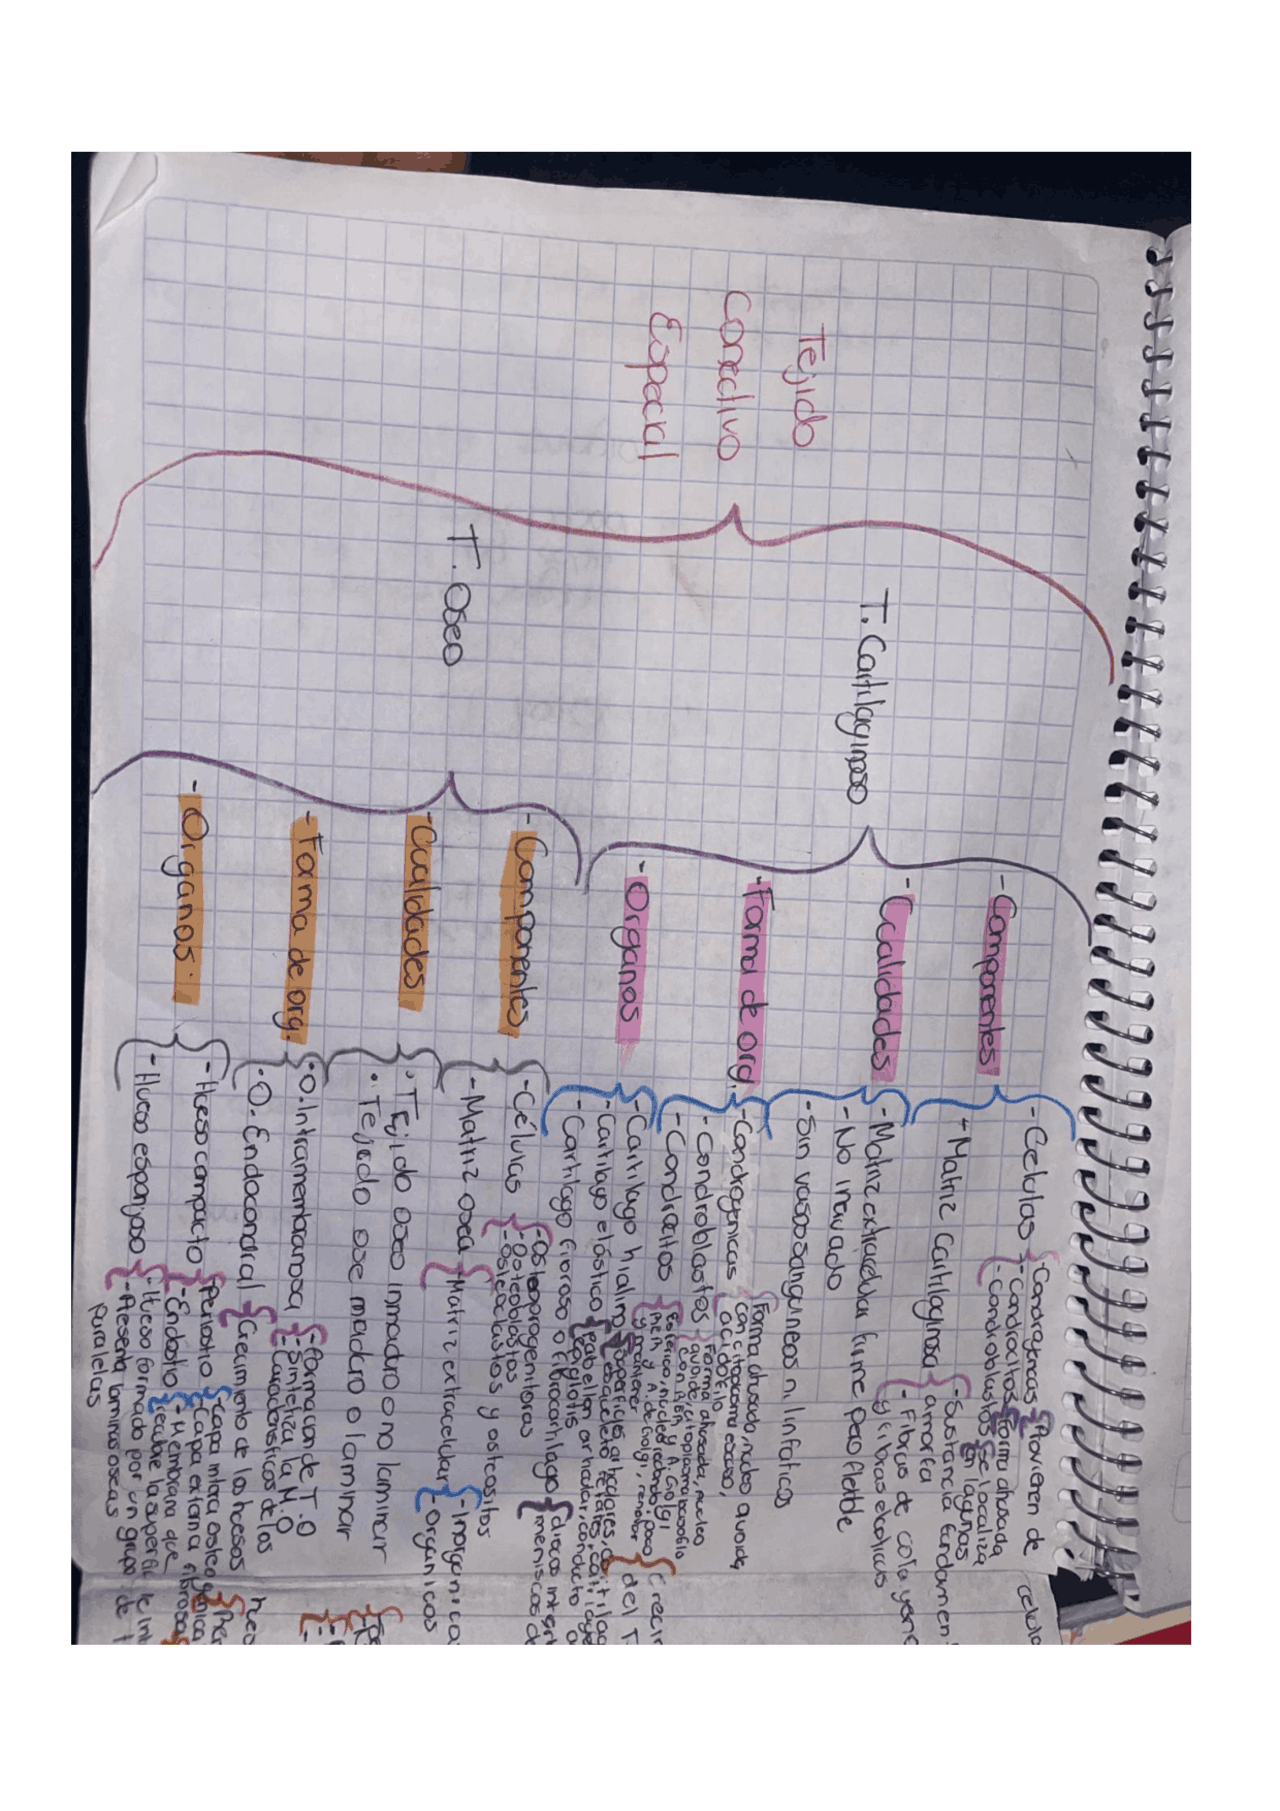 Tejido
Conectivo
Especial
T. Cartilaginoso
- Componentes
- Celulas
- Condrogenicas
Provienen de
- Condrocitos
forma ahusada
- Condroblastos
se localiza
en lagunas
celula
- Matriz Cartilaginosa
- Sustancia fundamen
amorfa
- Fibras de colageno
y fibras elasticas
- Cualidades
- Matriz extracelular firme pero flexible
- No inervado
- Sin vasos sanguineos ni linfaticos
- Forma de org.
- Condrogenicas
Forma ahusada, nucleo ovoide,
con citoplasma escaso,
acidofilo
- Condroblastos
Forma ahusada, nucleo
ovoide, citoplasma basofilo
con RER y A. Golgi
- Condrocitos
Esferico, nucleo redondo, poco
RER y A. de Golgi, remotor
y mantener
Crecim
del T
- Organos
- Cartilago hialino
superficies articulares, cartilag
esqueleto fetales, cartilage
- Cartilago elástico
pabellon articular, conducto a
epiglotis
- Cartilago fibroso o fibrocartilago
discos interv
meniscos de
T. Oseo
- Componentes
- Células
- Osteoprogenitoras
- Osteoblastos
- Osteoclastos y osteositos
- Matriz osea
- Matriz extracelular
- Inorganica
- Organicos
- Cualidades
• Tejido oseo inmaduro o no laminar
• Tejido oseo maduro o laminar
- Forma de org.
• O. Intramembranosa
- formacion de T.O
- Sintetiza la M.O
- Caracteristicas de los
• O. Endocondral
Crecimiento de los huesos
- Organos.
- Hueso compacto
- Periostio
- capa intera osteogenica
- Capa externa fibrosa
- Endostio
- Membrana que
recubre la superficie int
- Hueso esponjoso
- Hueso formado por un grupo de t
- Presenta laminas oseas
paralelas